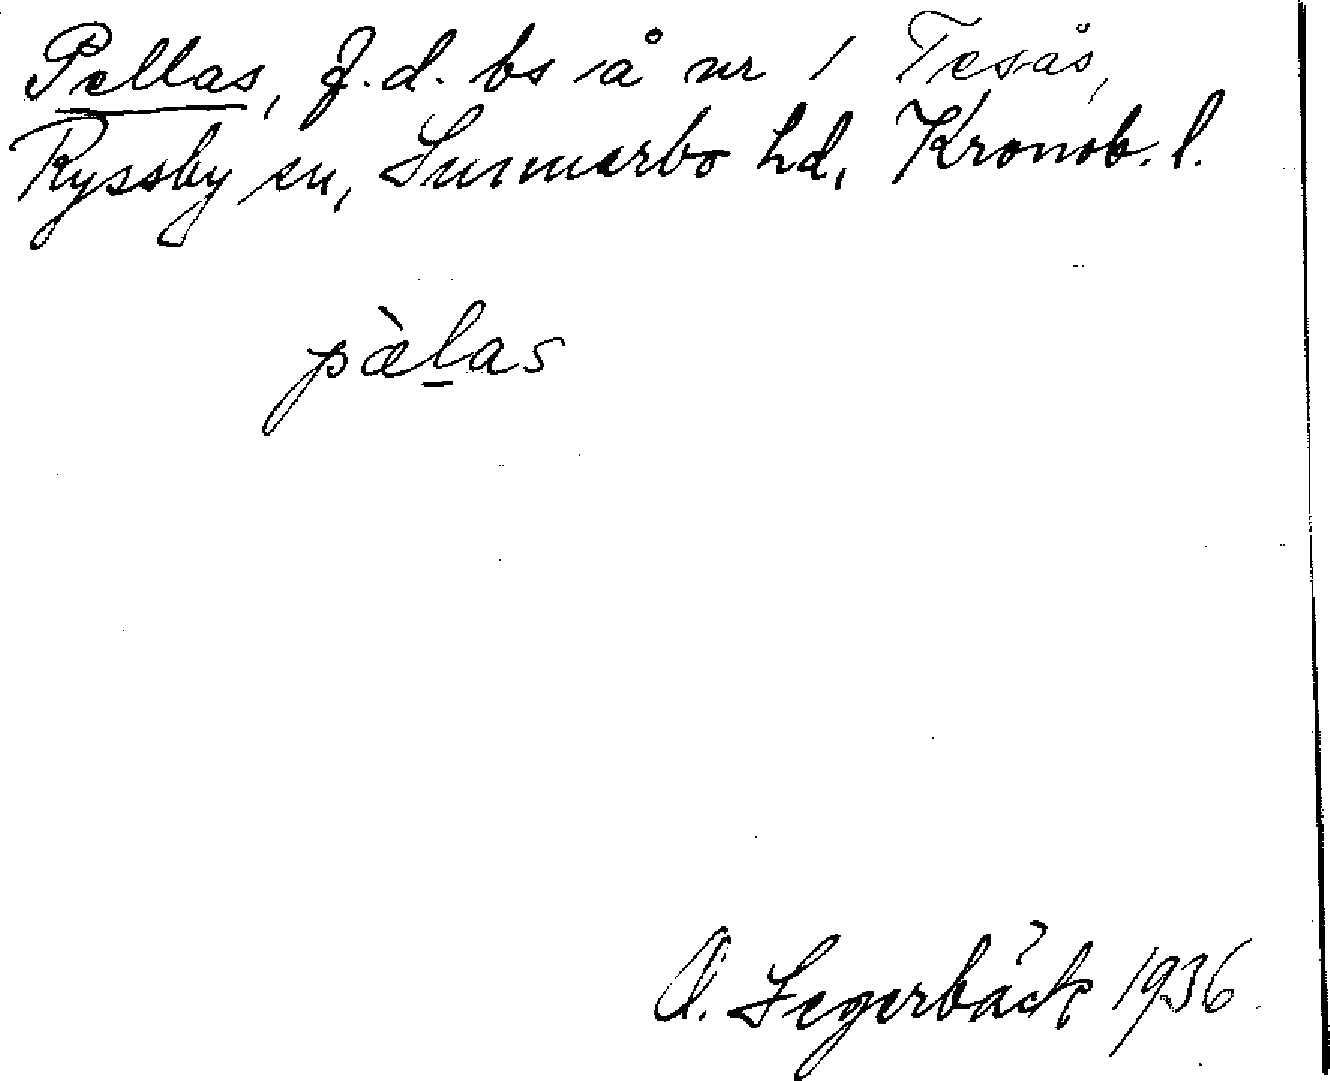 Pellas, f.d. bs å nr 1 Tesås,
Ryssby sn, Sunnerbo hd, Kronob. l.
pæ̀l̠as
O. Segerbäck 1936